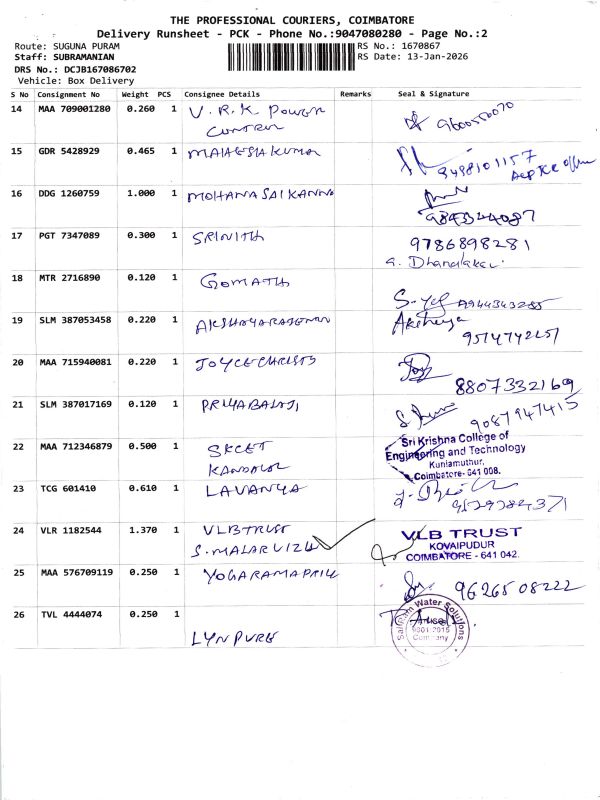 THE PROFESSIONAL COURIERS, COIMBATORE
Delivery Runsheet - PCK - Phone No.:9047080280 - Page No.:2
Route: SUGUNA PURAM
RS No.: 1670867
Staff: SUBRAMANIAN
RS Date: 13-Jan-2026
DRS No.: DCJB167086702
Vehicle: Box Delivery
S No Consignment No Weight PCS Consignee Details Remarks Seal & Signature
14 MAA 709001280 0.260 1 V.R.K. POWER
CONTROL
15 GDR 5428929 0.465 1 MAHESHKUMAR
9498101157
16 DDG 1260759 1.000 1 MOHANASAIKANNN
17 PGT 7347089 0.300 1 SRINITH 9786898281
18 MTR 2716890 0.120 1 GOMATH
19 SLM 387053458 0.220 1 Akshaya
20 MAA 715940081 0.220 1 JOYCECHRISTS Joy
8807332169
21 SLM 387017169 0.120 1 PRIYABALAJI
9087947415
22 MAA 712346879 0.500 1 SKCET
Sri Krishna College of
Engineering and Technology
Kuniamuthur,
Coimbatore- 641 008.
23 TCG 601410 0.610 1 LAVANYA
24 VLR 1182544 1.370 1 VLBTRUST
S.MALARVIZH
VLB TRUST
KOVAIPUDUR
COIMBATORE - 641 042.
25 MAA 576709119 0.250 1 YOGARAMAPRIY 9626508222
26 TVL 4444074 0.250 1
LYNPURE
Sai Ram Water Solutions
9001:2015
Company